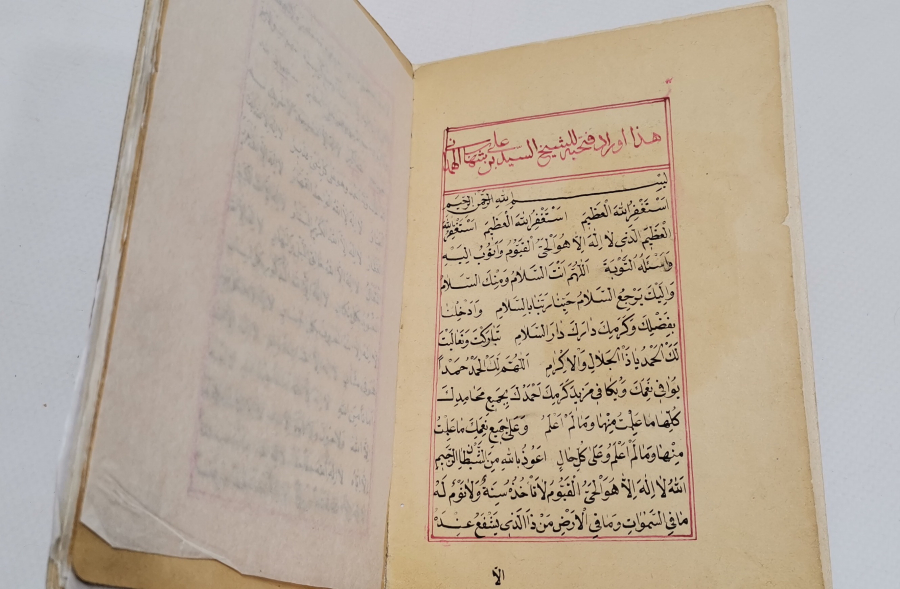 هذا اوراد فتحيه للشيخ السيد علي بن شهاب الهمداني
بسم الله الرحمن الرحيم
اَسْتَغْفِرُ اللهَ الْعَظِيمَ اَسْتَغْفِرُ اللهَ الْعَظِيمَ اَسْتَغْفِرُ اللهَ
الْعَظِيمَ الَّذِي لَا اِلٰهَ اِلَّا هُوَ الْحَيُّ الْقَيُّومُ وَاَتُوبُ اِلَيْهِ
وَاَسْئَلُهُ التَّوْبَةَ اَللّٰهُمَّ اَنْتَ السَّلَامُ وَمِنْكَ السَّلَامُ
وَاِلَيْكَ يَرْجِعُ السَّلَامُ حَيِّنَا رَبَّنَا بِالسَّلَامِ وَاَدْخِلْنَا
بِفَضْلِكَ وَكَرَمِكَ دَارَكَ دَارَ السَّلَامِ تَبَارَكْتَ وَتَعَالَيْتَ
لَكَ الْحَمْدُ يَا ذَا الْجَلَالِ وَالْاِكْرَامِ اَللّٰهُمَّ لَكَ الْحَمْدُ حَمْدًا
يُوَافِي نِعَمَكَ وَيُكَافِي مَزِيدَ كَرَمِكَ اَحْمَدُكَ بِجَمِيعِ مَحَامِدِكَ
كُلِّهَا مَا عَلِمْتُ مِنْهَا وَمَا لَمْ اَعْلَمْ وَعَلٰى جَمِيعِ نِعَمِكَ مَا عَلِمْتُ
مِنْهَا وَمَا لَمْ اَعْلَمْ وَعَلٰى كُلِّ حَالٍ اَعُوذُ بِاللهِ مِنَ الشَّيْطَانِ الرَّجِيمِ
اَللهُ لَا اِلٰهَ اِلَّا هُوَ الْحَيُّ الْقَيُّومُ لَا تَأْخُذُهُ سِنَةٌ وَلَا نَوْمٌ لَهُ
مَا فِي السَّمٰوَاتِ وَمَا فِي الْاَرْضِ مَنْ ذَا الَّذِي يَشْفَعُ عِنْدَهُ
الا